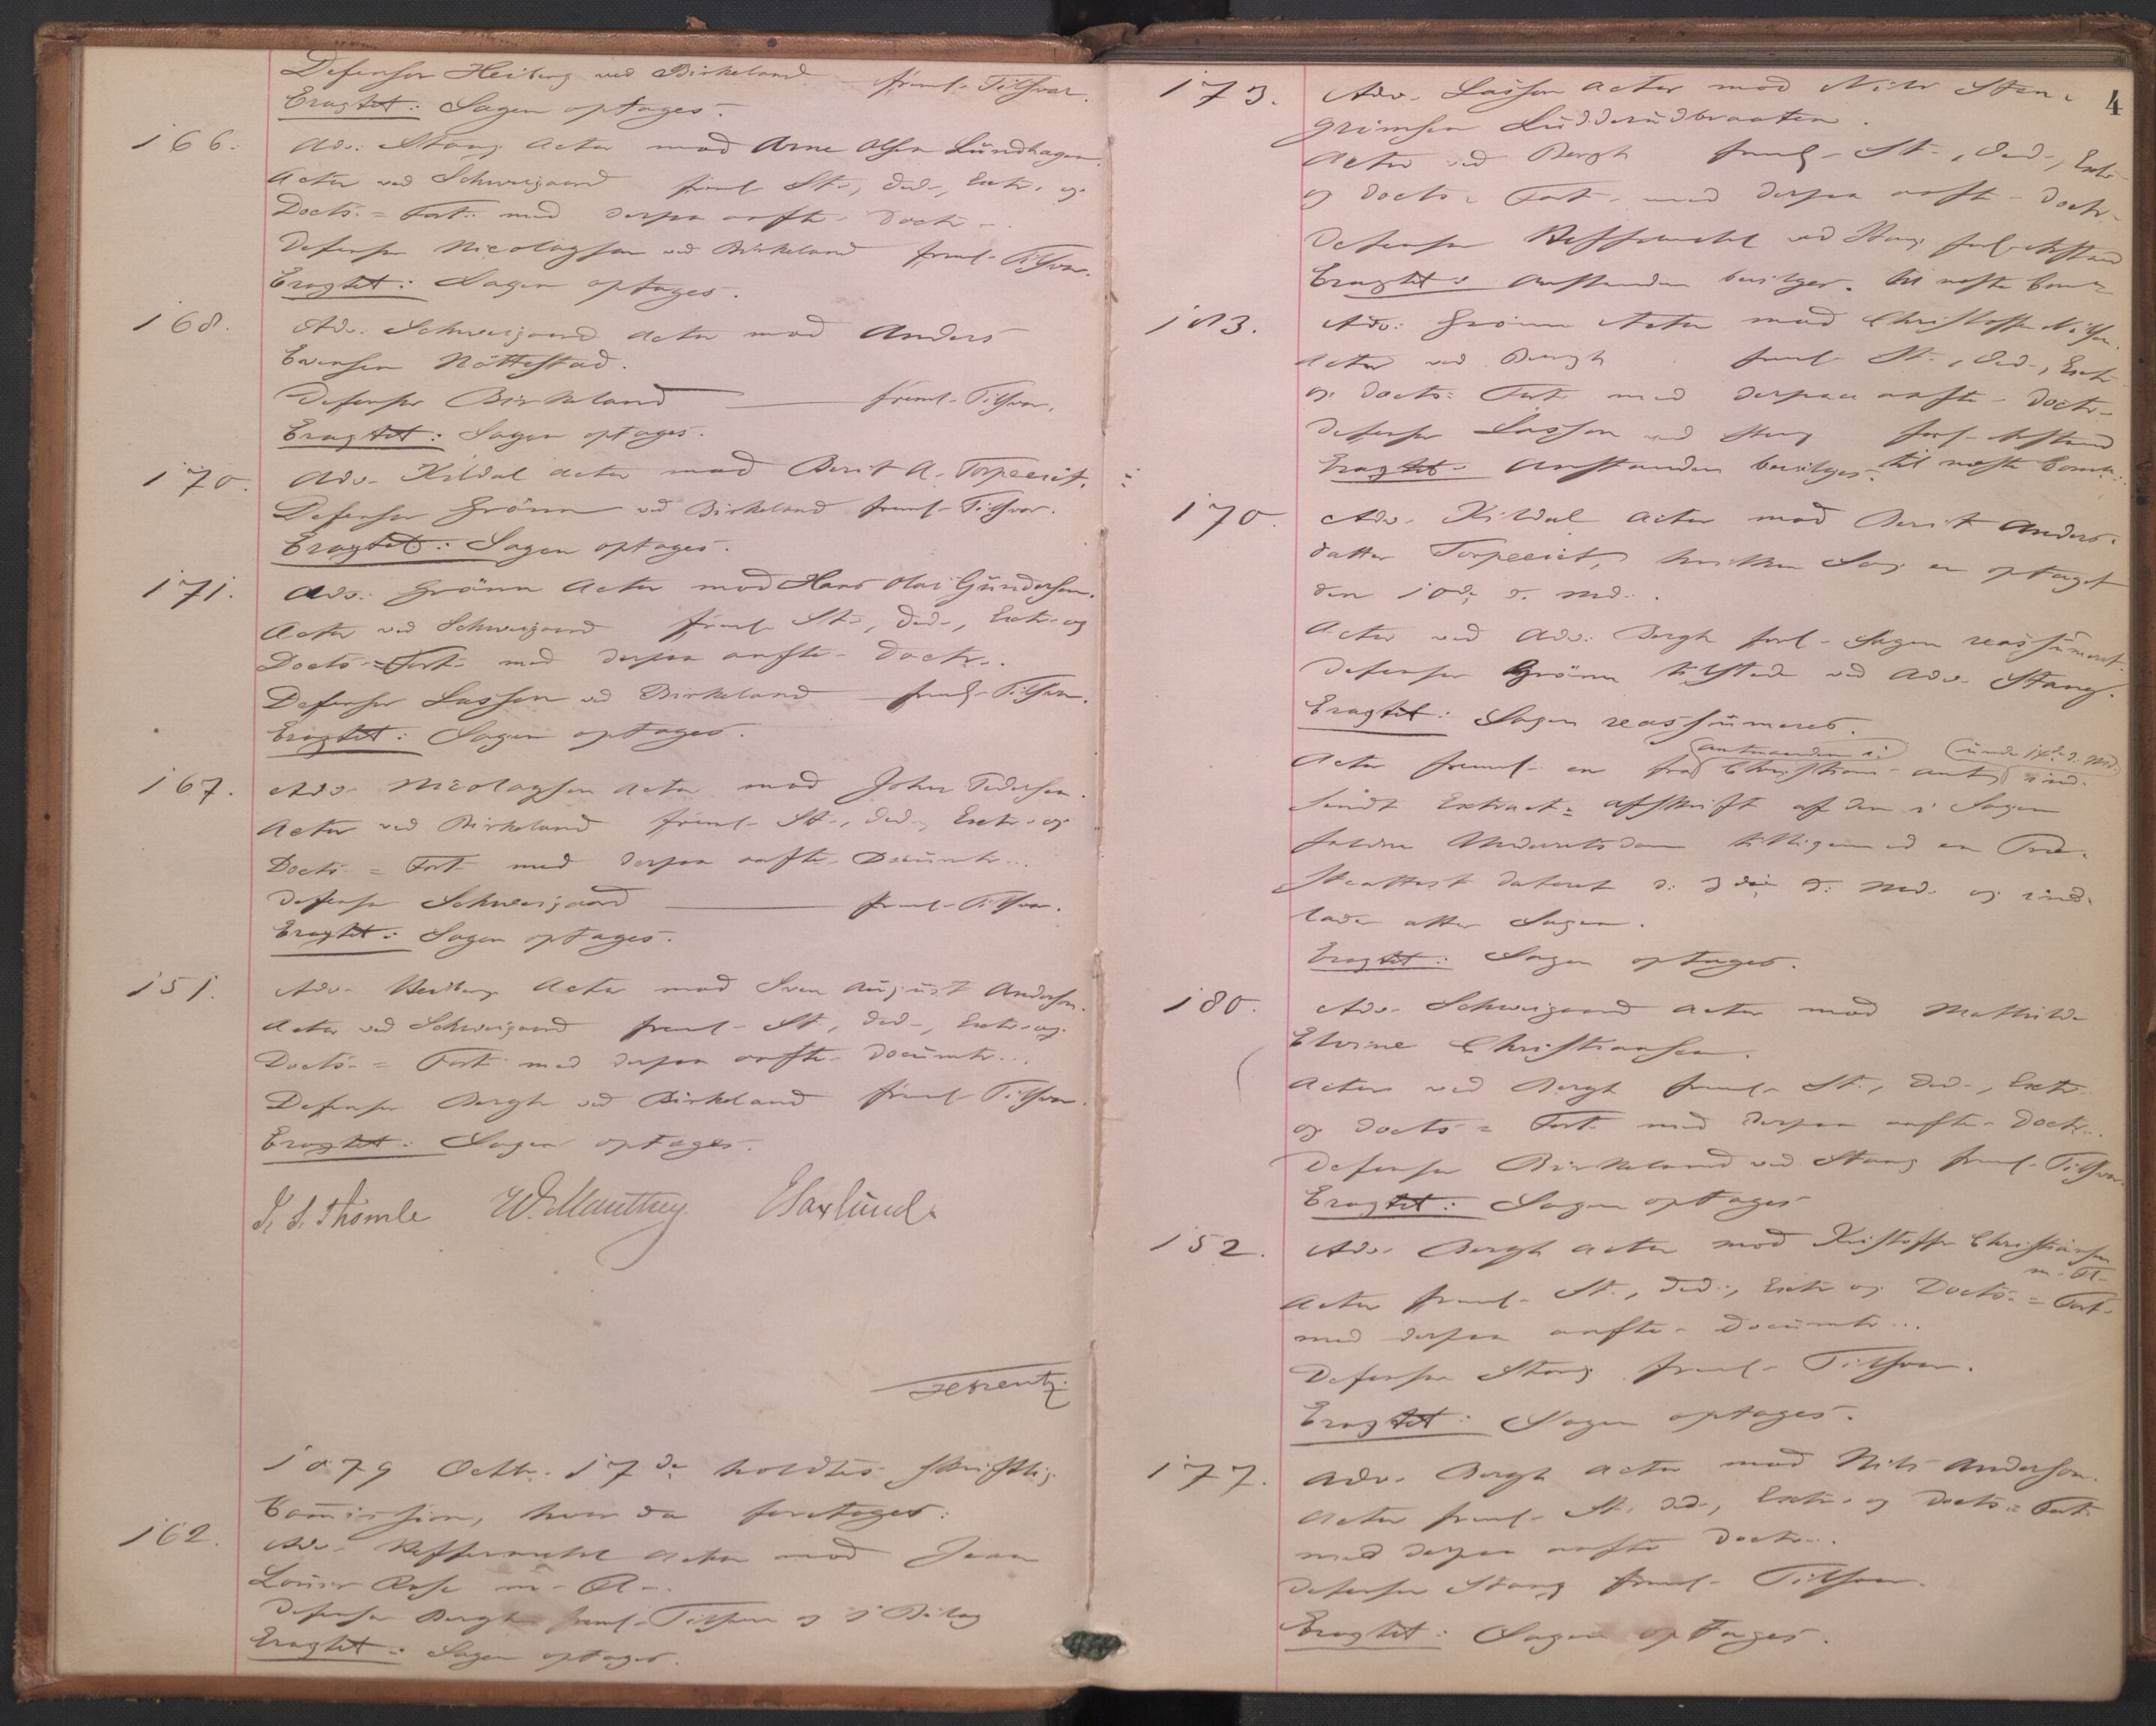 Defensor Heiberg ved Birkeland freml- Tilsvar.
Eragtet: Sagen optages.
166. Adv. Stang Actor mod Arne Olsen Lundhagen.
Actor ved Schweigaard freml St-, Ded-, Extr- og
Docts.= Fort: med derpaa anfte- Doctr-.
Defensor Nicolaysen ved Birkeland freml- Tilsvar.
Eragtet: Sagen optages.
168. Adv. Schweigaard Actor mod Anders
Evensen Nöttestad.
Defensor Birkeland freml- Tilsvar.
Eragtet: Sagen optages.
170. Adv. Kildal Actor mod Berit A. Torpeeiet.
Defensor Grönn ved Birkeland freml- Tilsvar.
Eragtet: Sagen optages.
171. Adv. Grönn Actor mod Hans Olai Gundersen.
Actor ved Schweigaard freml- St-, Ded-, Extr- og
Docts- = Fort- med derpaa anfte- Doctr..
Defensor Lasson ved Birkeland freml- Tilsvar.
Eragtet: Sagen optages.
167. Adv- Nicolaysen Actor mod John Pedersen.
Actor ved Birkeland freml- St-, Ded-, Extr- og
Docts- = Fort- med derpaa anfte- Documtr...
Defensor Schweigaard freml- Tilsvar.
Eragtet: Sagen optages.
151. Adv- Heiberg Actor mod Sven August Andersen.
Actor ved Schweigaard freml- St-, Ded-, Extr- og
Docts- = Fort- med derpaa anfte- Documtr...
Defensor Bergh ved Birkeland freml- Tilsvar.
Eragtet: Sagen optages.
J. S. Thomle W. Manthey
1879 Octbr. 17de holdtes skriftlig
Commission, hvor da foretages:
162. Adv- Actor mod Jean
Louis Rose m- A-.
Defensor Bergh freml- Tilsvar og 1 Bilag
Eragtet: Sagen optages.
4
173. Adv- Lasson Actor mod Nils Sten-
grimsen Ludderudbraaten.
Actor ved Bergh freml- St-, Ded-, Extr-
og Docts- = Fort- med derpaa anfte- Doctr-
Defensor ved Stang forl- Anstand
Eragtet: Anstanden bevilges til næste Comm-
183. Adv. Grönn Actor mod Christoffer Nilsen.
Actor ved Bergh freml- St-, Ded-, Extr-
og Docts- = Fort- med derpaa anfte- Doctr-
Defensor Lasson ved Stang forl- Anstand
Eragtet: Anstanden bevilges til næste Comm..
170. Adv- Kildal Actor mod Berit Anders-
datter Torpeeiet, hvilken Sag er optaget
den 10de d. Md..
Actor ved Adv. Bergh forl- Sagen reassumeret.
Defensor Grönn tilstede ved Adv- Stang.
Eragtet: Sagen reassumeres.
amtmanden i under 14de d. Md.
Actor freml- en fra Christians- amt ind-
sendt Extract= Afskrift af den i Sagen
faldne Underretsdom tilligemed en Præ-
steattest dateret d: 3die d: Md. og ind-
lader atter Sagen.
Eragtet: Sagen optages.
180. Adv- Schweigaard Actor mod Mathilde
Elvine Christiansen.
Actor ved Bergh freml- St-, Ded-, Extr-
og Docts- = Fort- med derpaa anfte- Doctr..
Defensor Birkeland ved Stang freml- Tilsvar.
Eragtet: Sagen optages
152. Adv- Bergh Actor mod Kristoffer Christiansen
m- Fl-
Actor freml- St-, Ded-, Extr- og Docts- = Fort-
med derpaa anfte- Documtr...
Defensor Stang freml- Tilsvar.
Eragtet: Sagen optages.
177. Adv- Bergh Actor mod Nils Andersen.
Actor freml- St- Ded-, Extr- og Docts- = Fort-
med derpaa anfte Doctr...
Defensor Stang freml- Tilsvar.
Eragtet: Sagen optages.